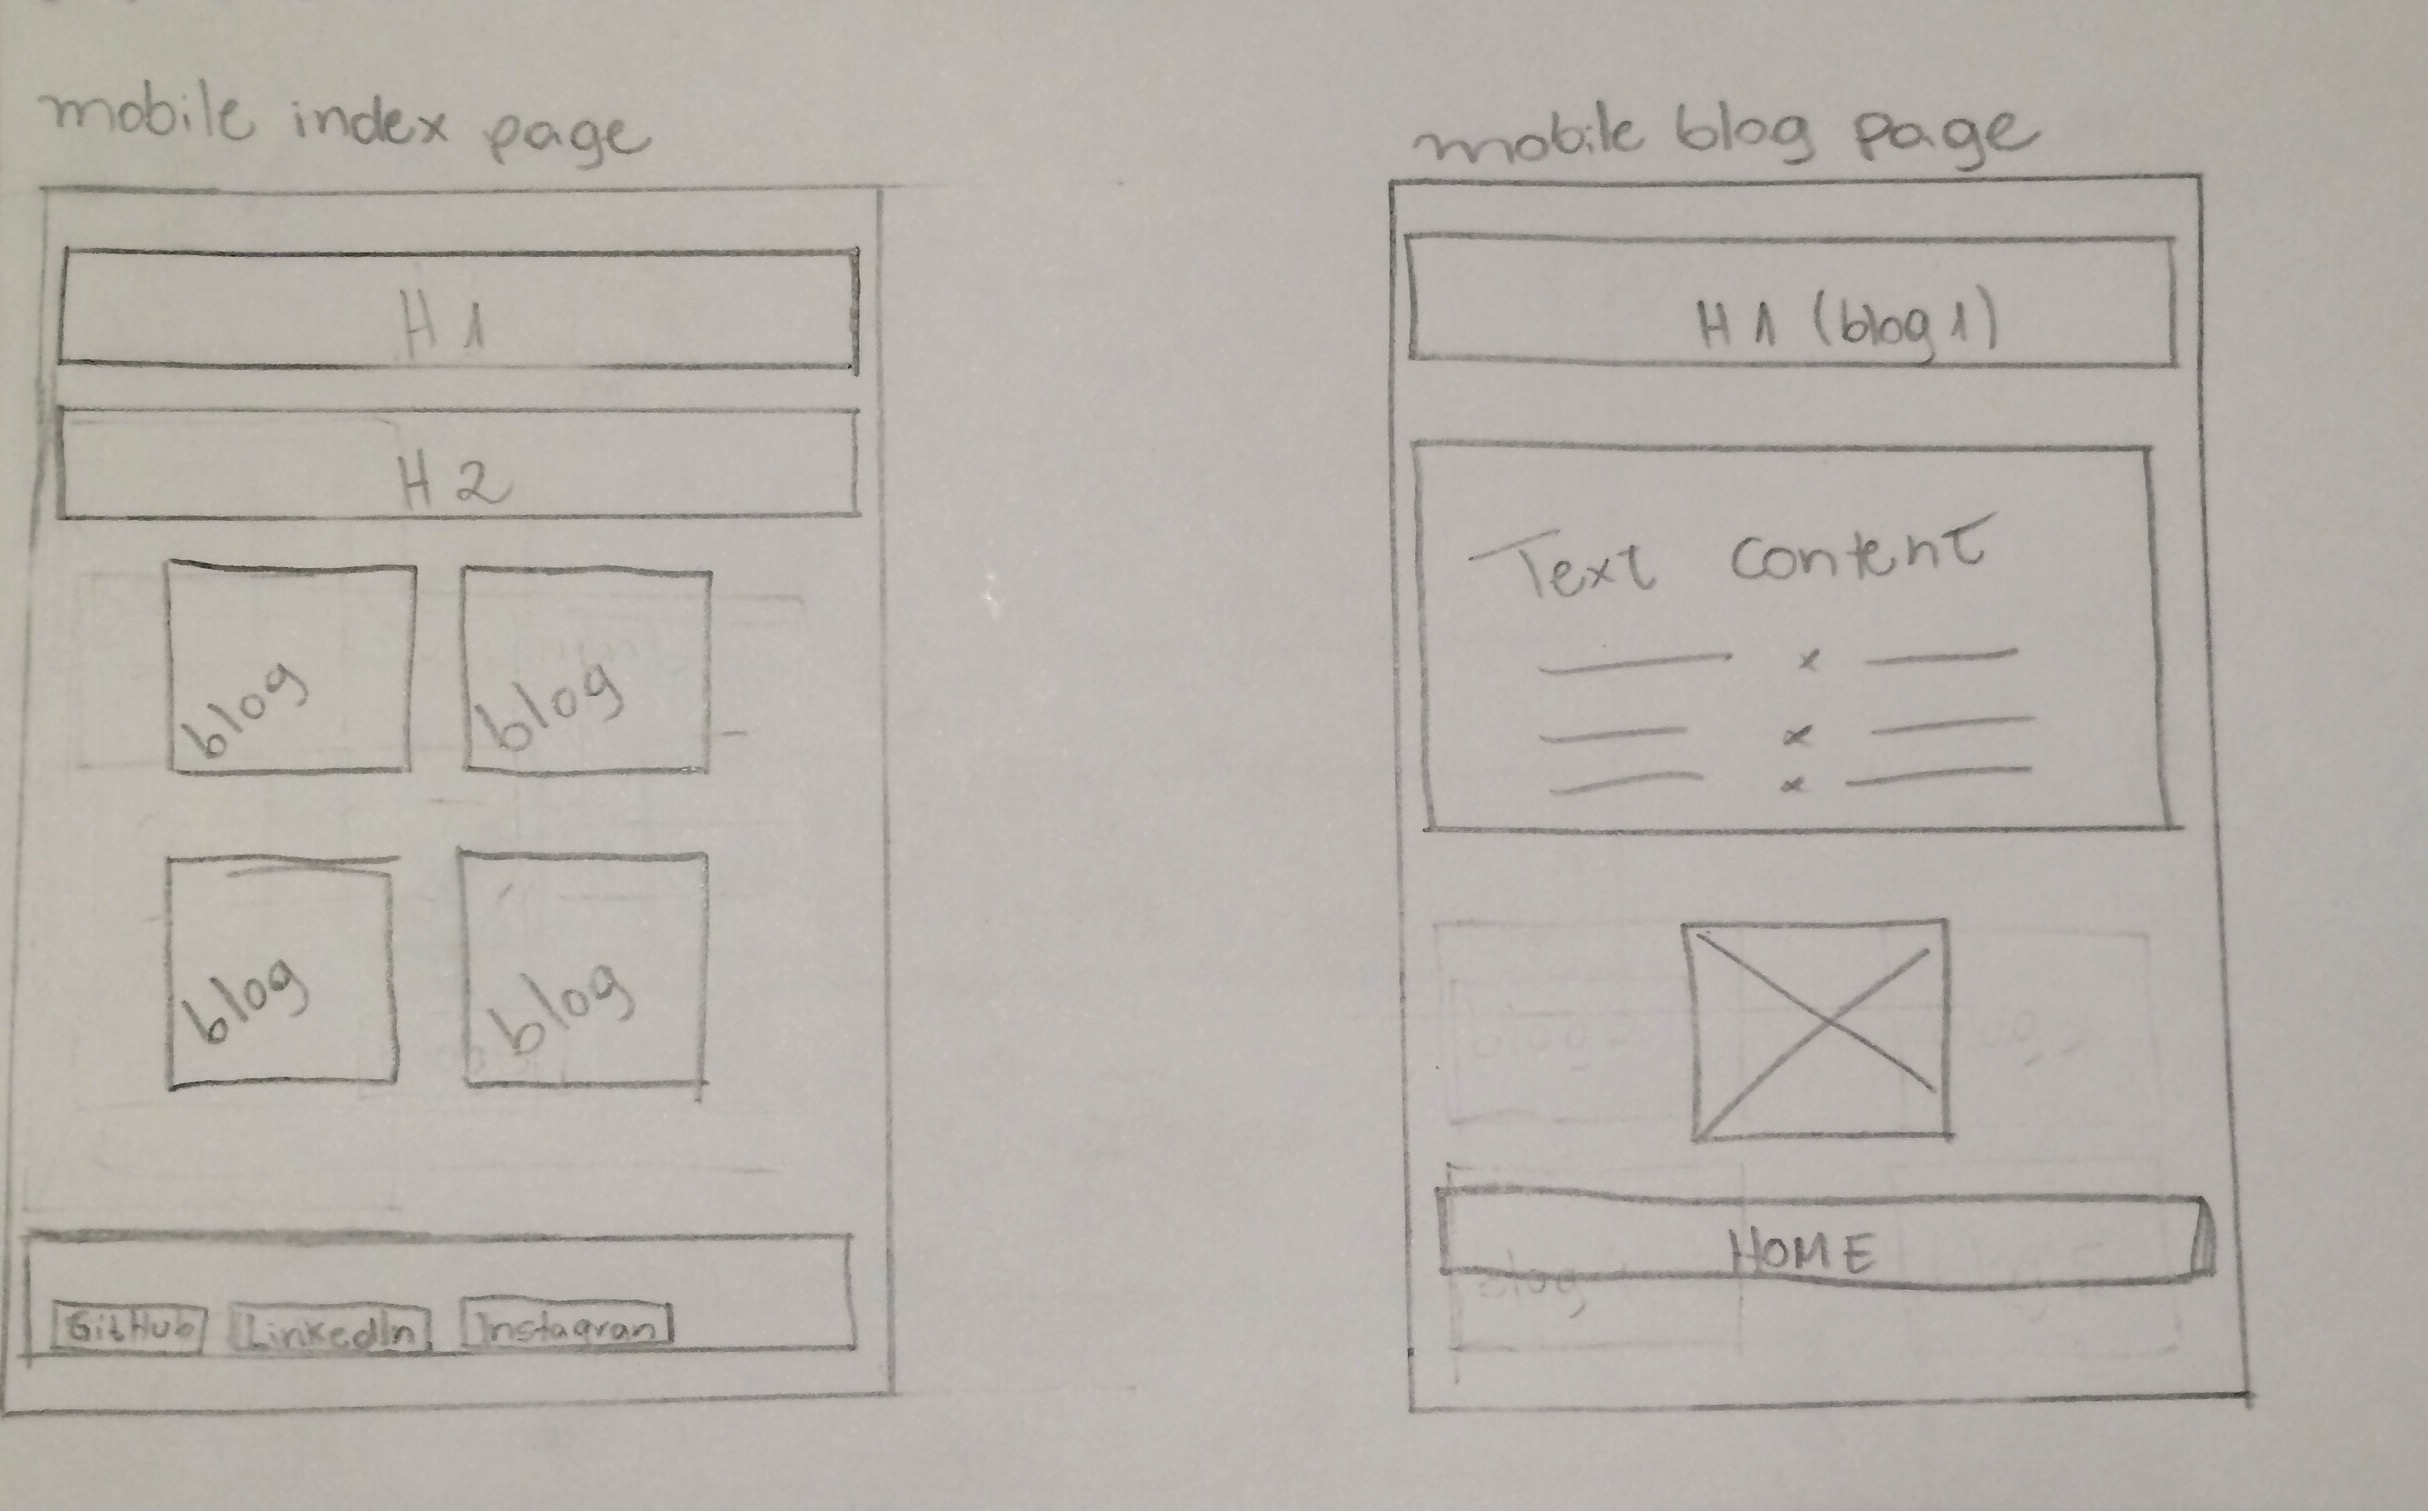 mobile index page
H1
H2
blog blog
blog blog
GitHub LinkedIn Instagram
mobile blog page
H1 (blog 1)
Text content
x
x
x
HOME
blog